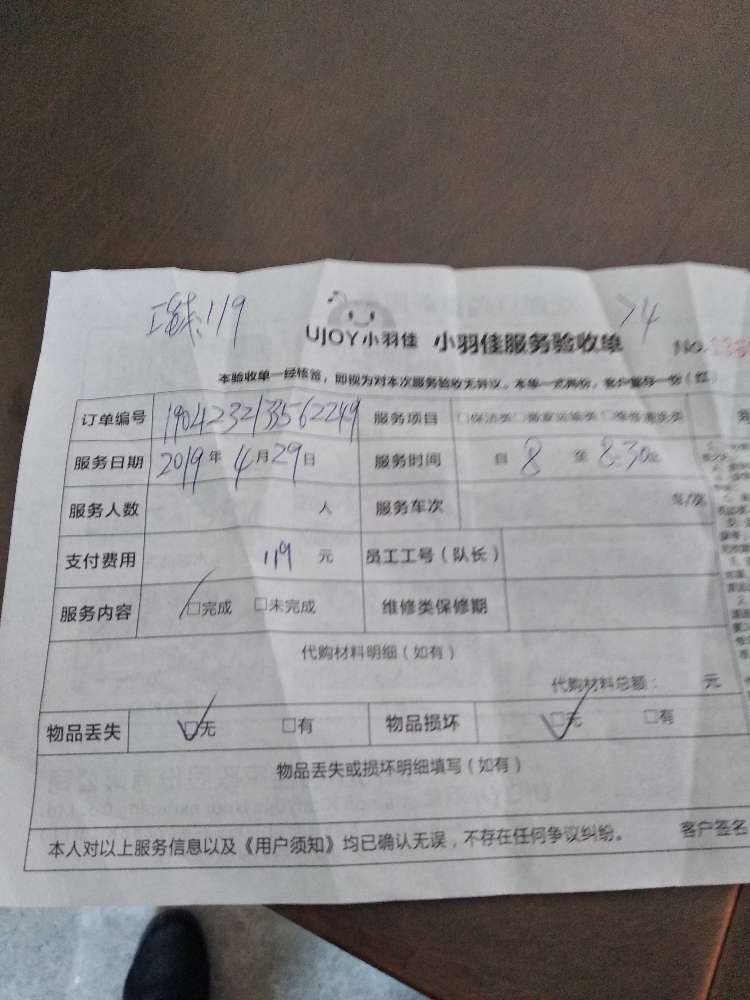 119
74
UJOY小羽佳 小羽佳服务验收单 No.
本验收单一经核签，即视为对本次服务验收无异议。本单一式两份，客户留存一份（
订单编号 1904232133562249 服务项目 □保洁类□搬家运输类□维修清洗类
服务日期 2019年4月29日 服务时间 自 8 至 8:30
服务人数 人 服务车次 车/次
支付费用 119 元 员工工号（队长）
服务内容 □完成 □未完成 维修类保修期
代购材料明细（如有）
代购材料总额： 元
物品丢失 □无 □有 物品损坏 □无 □有
物品丢失或损坏明细填写（如有）
本人对以上服务信息以及《用户须知》均已确认无误，不存在任何争议纠纷。 客户签名